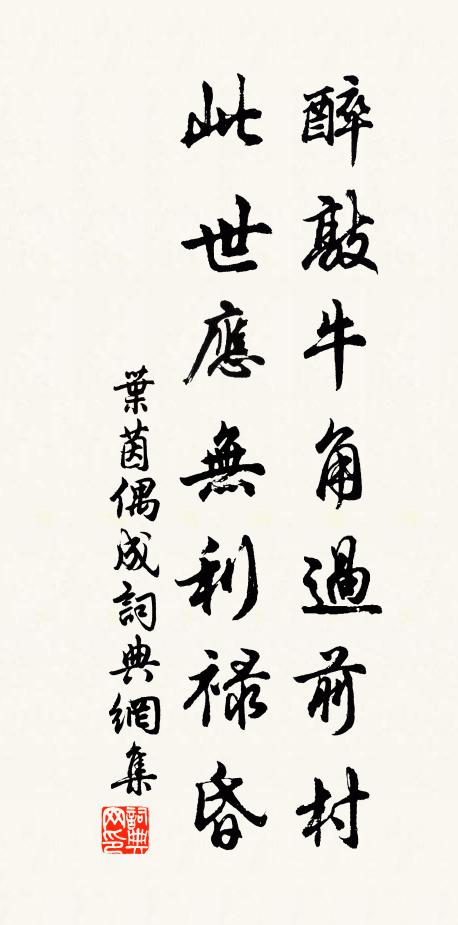 醉敲牛角過前村
此世應無利祿昏
葉茵偶成詞典網集
詞典網印